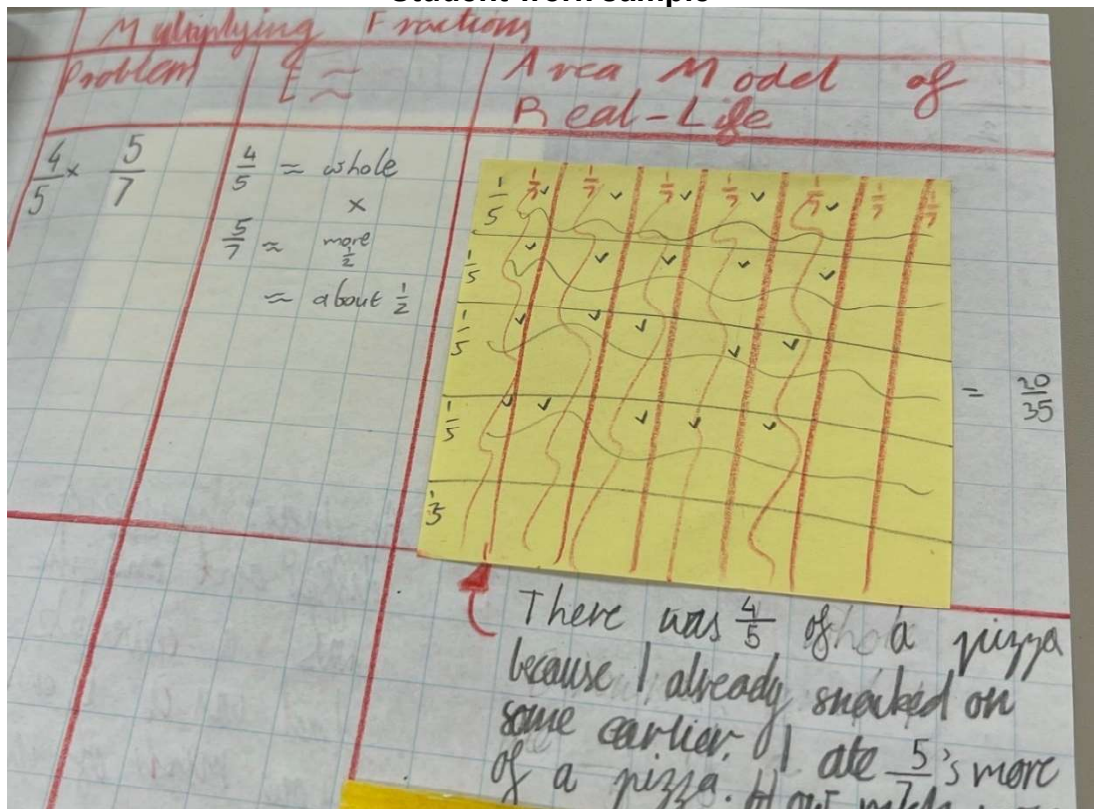 Student work sample
Multiplying Fractions
Problem
E ≈
Area Model of
Real-Life
4/5 × 5/7
4/5 ≈ whole
×
5/7 ≈ more 1/2
≈ about 1/2
1/5 1/7 1/7 1/7 1/7 1/7 1/7 1/7
1/5
1/5
1/5
1/5
= 20/35
There was 4/5 of a pizza
because I already snacked on
some earlier. I ate 5/7's more
of a pizza. How much